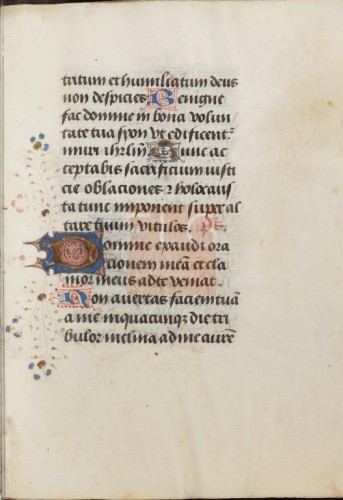 tritum et humiliatum deus
non despicies Benigne
fac domine in bona volun
tate tua syon vt edificent᷑
muri ihrl̄m Tunc ac
ceptabis sacrificium iusti
cie oblaciones ⁊ holocaus
ta tunc imponent super al
tare tuum vitulos. ps.
Domine exaudi ora
tionem meā et cla
mor meus ad te veniat
Non auertas faciem tuā
a me in quacunqꝫ die tri
bulor inclina ad me aurē